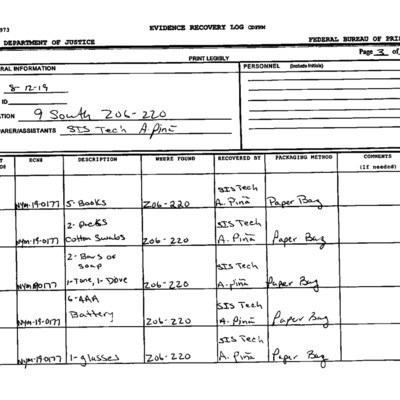 973
EVIDENCE RECOVERY LOG CDFRM
DEPARTMENT OF JUSTICE
FEDERAL BUREAU OF PRI
PRINT LEGIBLY
Page 3 of
RAL INFORMATION
PERSONNEL (Include Initials)
8-12-19
ID
ATION 9 South Z06-220
PARER/ASSISTANTS SIS Tech A. Piña
ECN# DESCRIPTION WHERE FOUND RECOVERED BY PACKAGING METHOD COMMENTS
(If needed)
NYM-19-0177 5-Books Z06-220 SIS Tech A. Piña Paper Bag
NYM-19-0177 2-Packs Cotton Swabs Z06-220 SIS Tech A. Piña Paper Bag
2-Bars of soap 1-Tone, 1-Dove Z06-220 SIS Tech A. Piña Paper Bag
NYM-19-0177 6-AAA Battery Z06-220 SIS Tech A. Piña Paper Bag
NYM-19-0177 1-glasses Z06-220 SIS Tech A. Piña Paper Bag